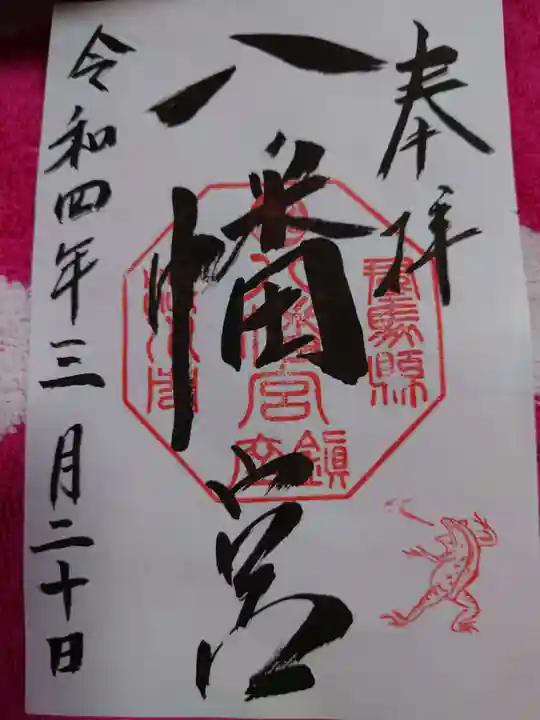 奉拝
八幡宮
群馬縣
鎮座
令和四年三月二十日